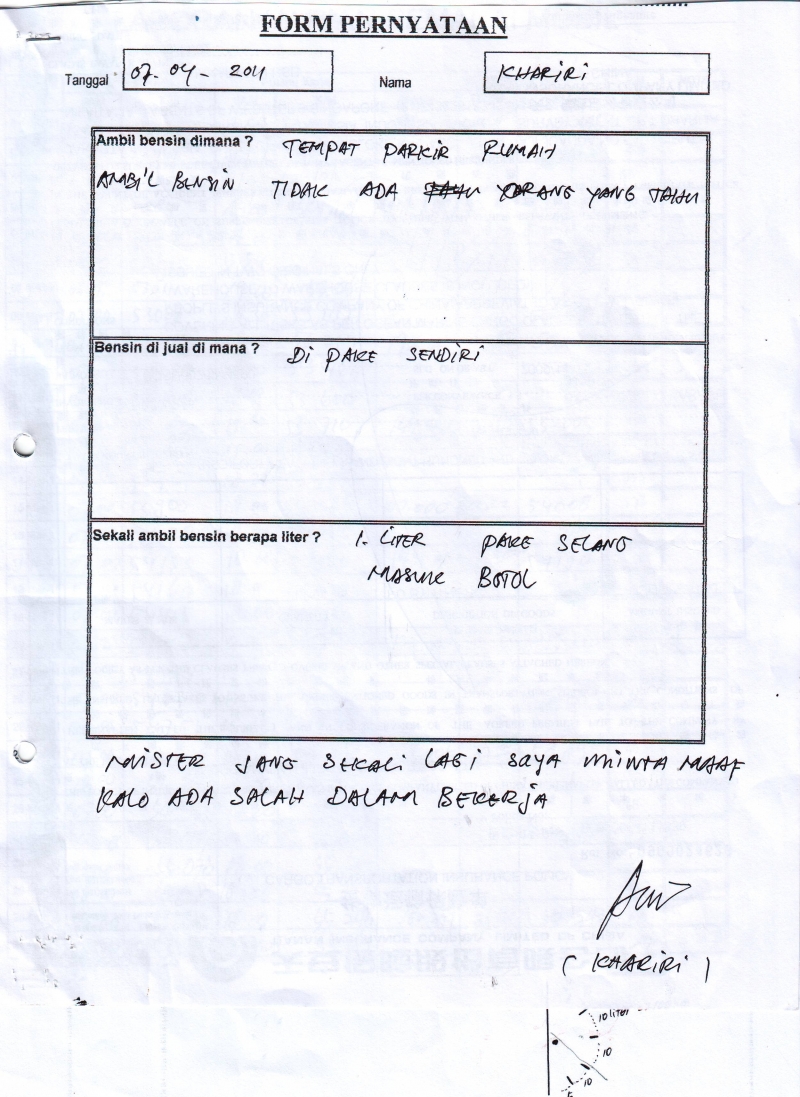 FORM PERNYATAAN
Tanggal 07-04-2011 Nama KHARIRI
Ambil bensin dimana ? TEMPAT PARKIR RUMAH
AMBIL BENSIN TIDAK ADA ORANG YANG TAHU
Bensin di jual di mana ? Di PAKE SENDIRI
Sekali ambil bensin berapa liter ? 1. LITER PAKE SELANG
MASUK BOTOL
MISTER YANG SEKALI LAGI SAYA MINTA MAAF
KALO ADA SALAH DALAM BEKERJA
( KHARIRI )
10 liter
10
10